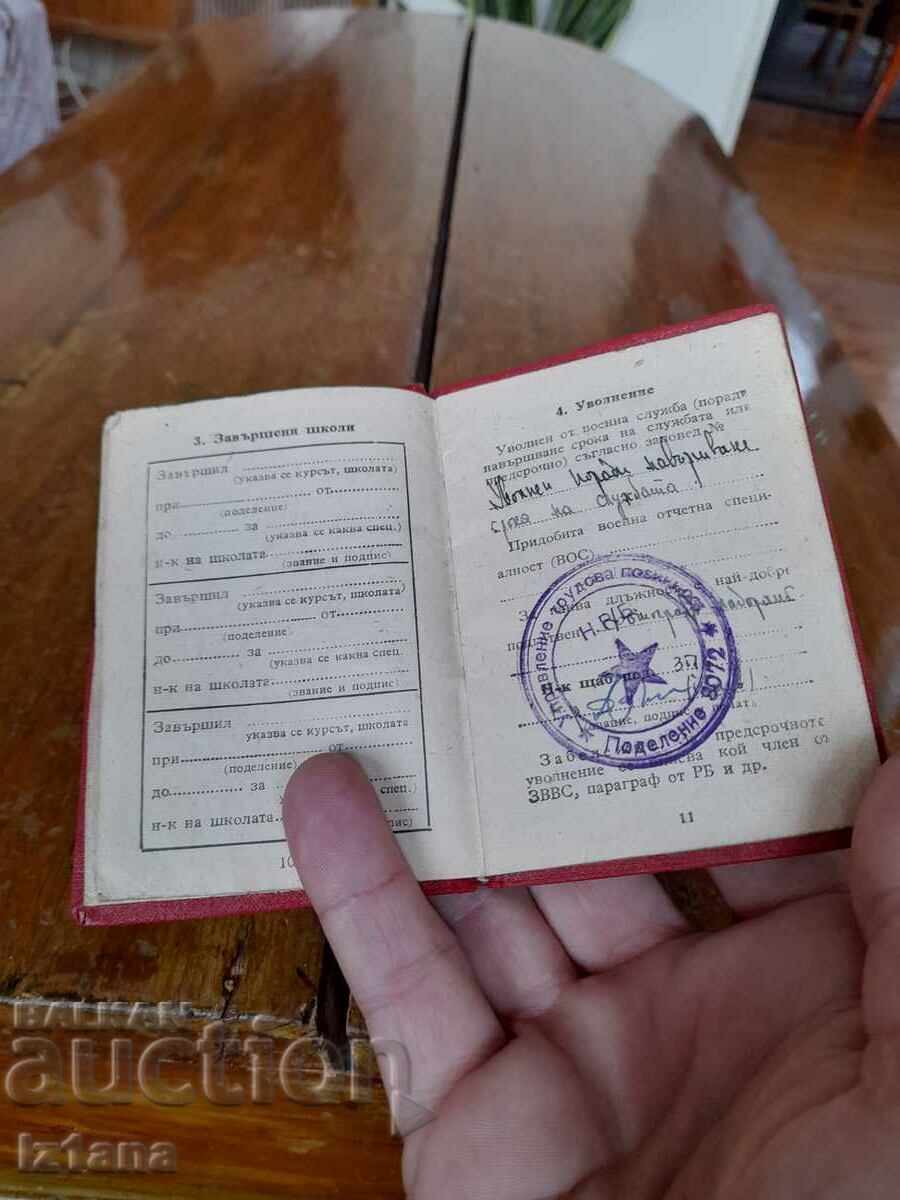 3. Завършени школи
Завършил
(указва се курсът, школата)
при от
(поделение)
до за
(указва се каква спец.)
н-к на школата
(звание и подпис)
Завършил
(указва се курсът, школата)
при от
(поделение)
до за
(указва се каква спец.
н-к на школата
(звание и подпис)
Завършил
указва се курсът, школата
при от
(поделение)
до за
спец.)
н-к на школата
10
4. Уволнение
Уволнен от военна служба (поради
навършване срока на службата или
предсрочно) съгласно заповед №
Уволнен поради навършване
срока на службата
Придобита военна отчетна специ-
алност (ВОС)
За каква длъжност най-добре
Н-к щаб
Управление трудова повинност
Поделение 2072
предсрочното
уволнение кой член от
ЗВВС, параграф от РБ и др.
11
BALKAN
auction
Iz1ana